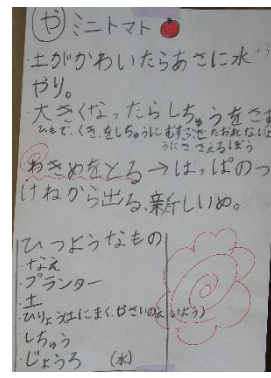 や ミニトマト
・土がかわいたらあさに水や
やり。
・大きくなったらしちゅうをさす
ひもで、くき、をしちゅうにむすぶ たおれないよ
うに ささえるぼう
わきめをとる→はっぱのつ
けねから出る、新しいめ。
ひつようなもの
・なえ
・プランター
・土
・ひりょう(土にまく、やさいのえいよう)
・しちゅう
・じょうろ (水)